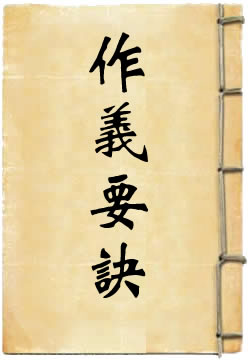 作義要訣